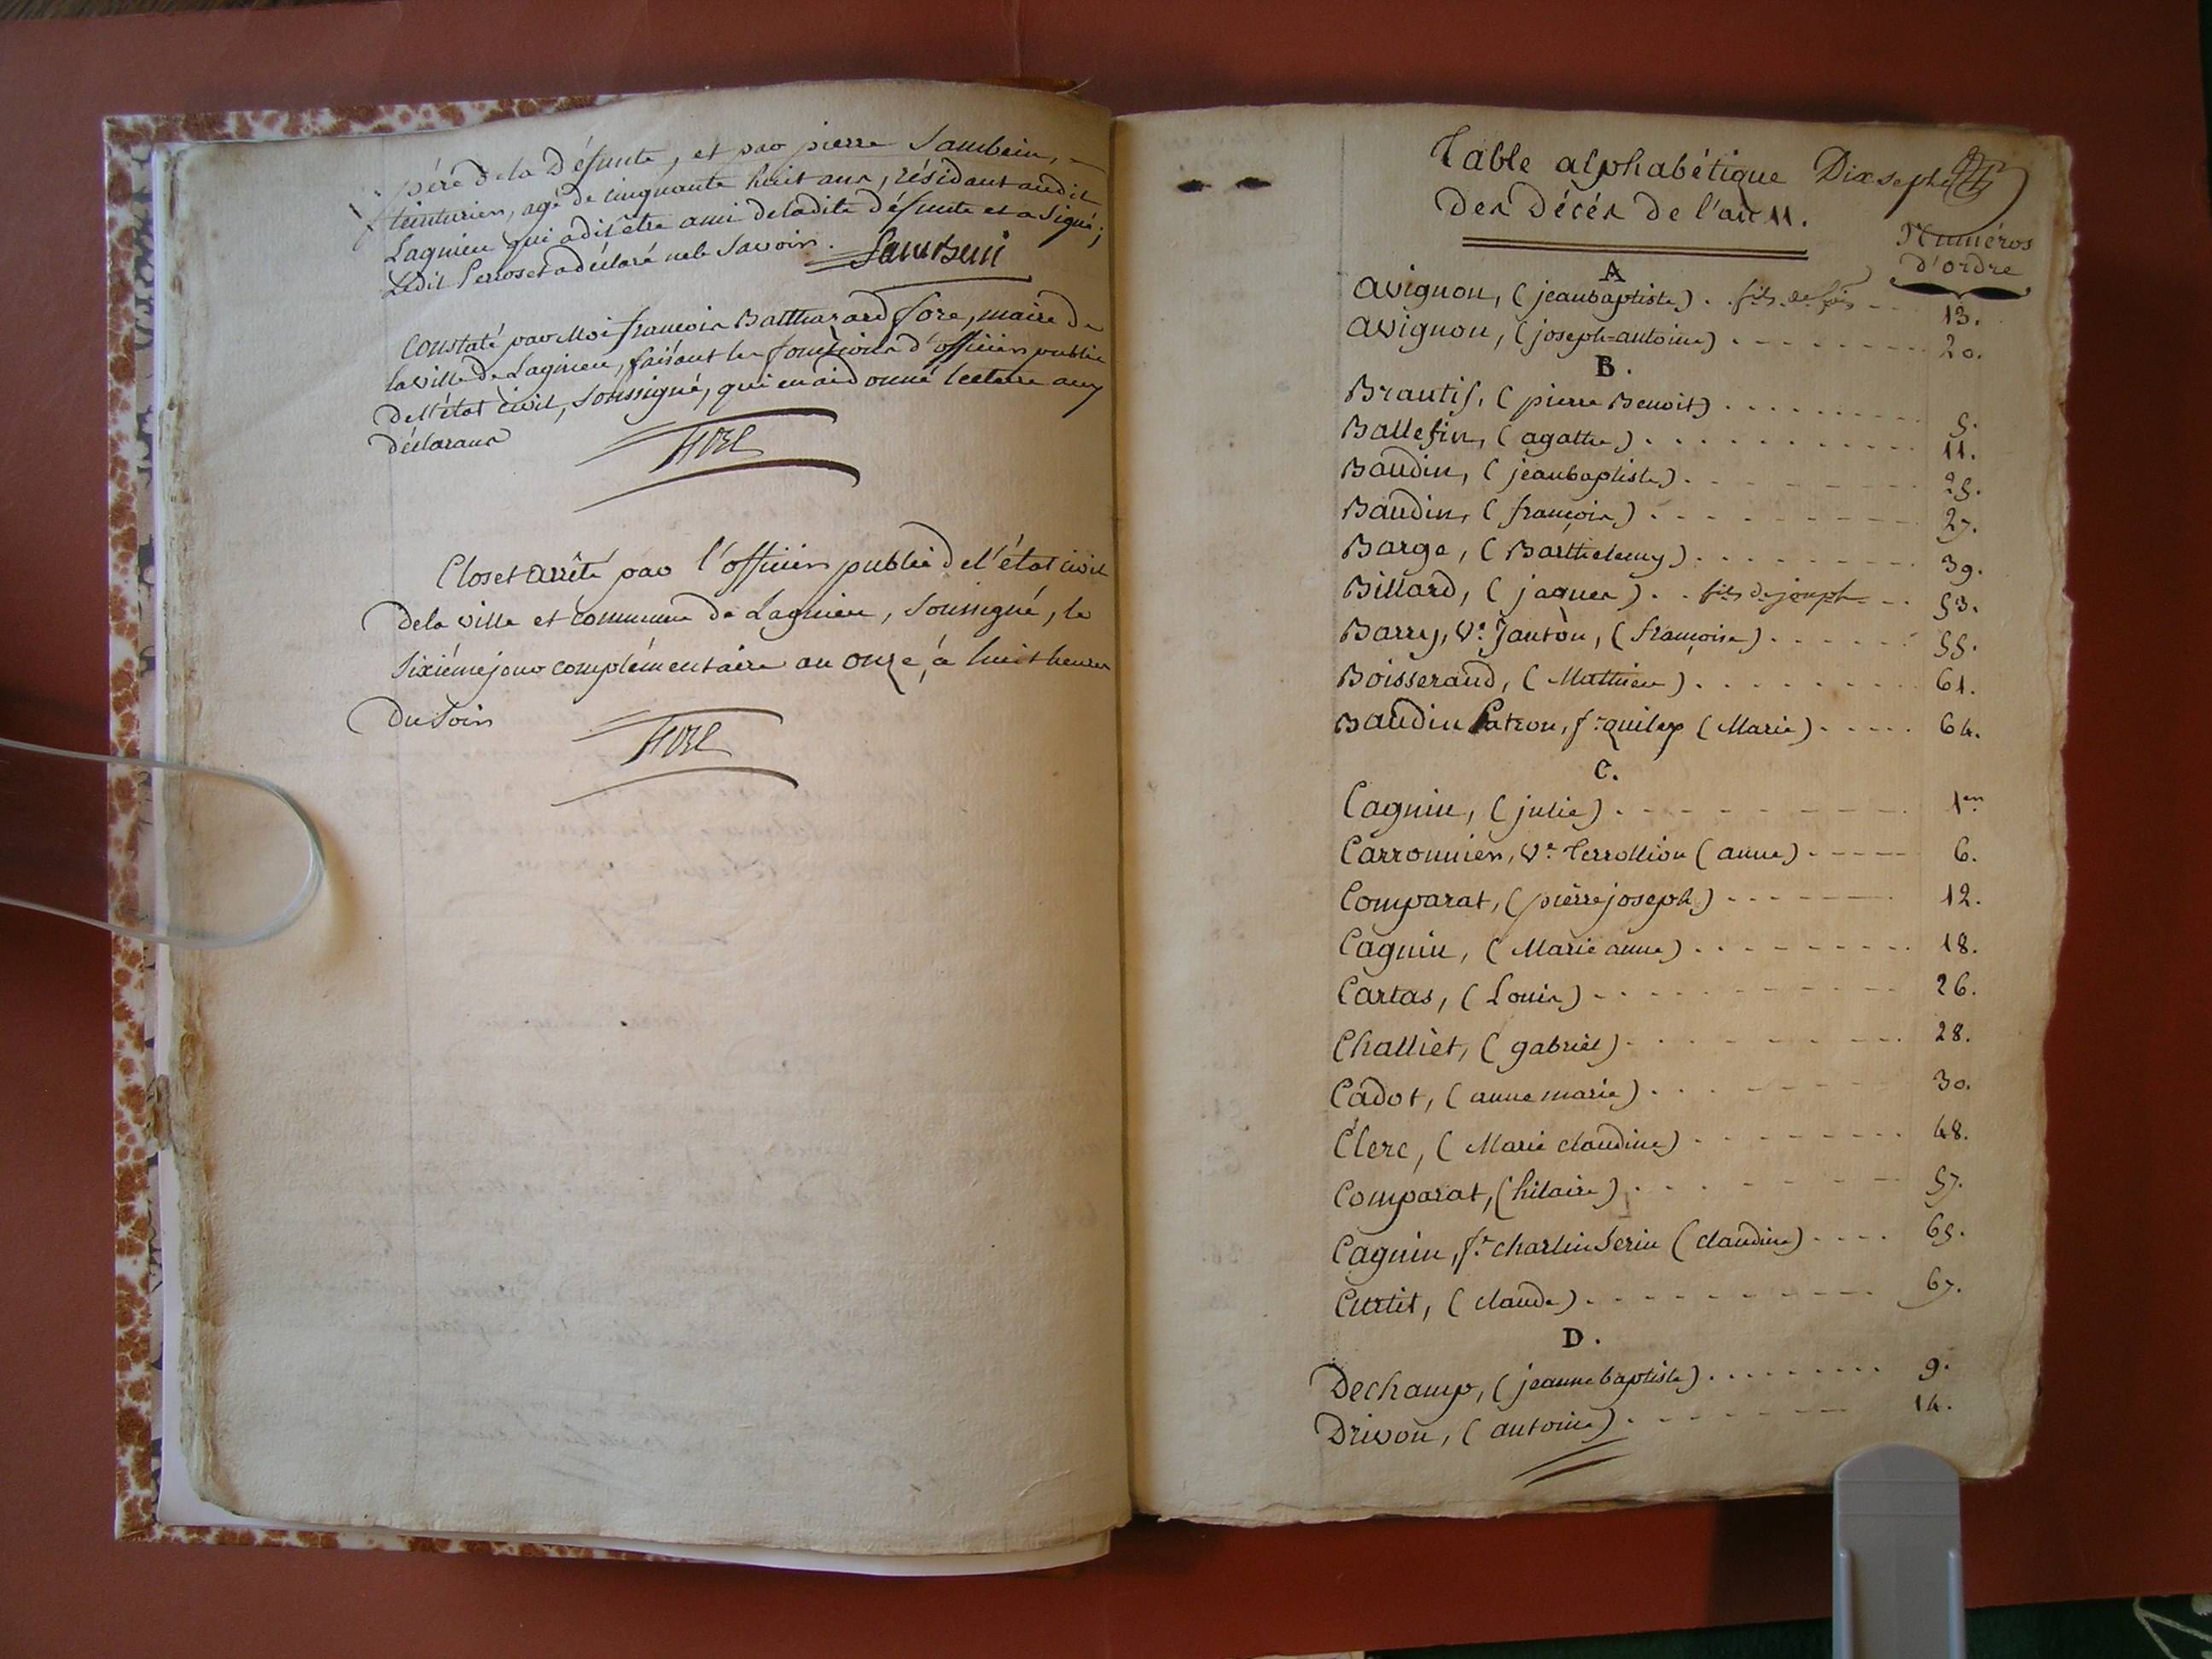 père de la Défunte, et par pierre Sambein,
teinturier, agé de cinquante huit ans, résidant audit
Lagnieu qui a dit être ami de ladite défunte et a Signé;
Ledit Perroset a déclaré ne le Savoir. Sambein
Constaté par Moi françois Balthazard fore, maire de
la ville de Lagnieu, faisant les fonctions d'officier public
de l'état civil, Soussigné, qui en ai donné lecture aux
déclarans
FORE
Clos et arrêté par l'officier public de l'état civil
de la ville et commune de Lagnieu, Soussigné, le
Sixième jour complémentaire an onze, à huit heures
du Soir
FORE
Table alphabétique Dix sept
Des Décés de l'an 11.
Numéros
d'ordre
A
Avignon, (jean baptiste) . fils de 13.
Avignon, (joseph-antoine) 20.
B.
Brantis, (pierre Benoit) 5.
Ballefin, (agathe) 11.
Baudin, (jean baptiste) 25.
Baudin, (françois) 27.
Barge, (Barthelemy) 39.
Billard, (jaques) . fils de joseph 53.
Barry, Ve. Janton, (françoise) 55.
Boisserand, (Mathieu) 61.
Baudin Patron, fe. (Marie) 64.
C.
Cagnin, (julie) 1er
Carronnier, Ve. Terrollion (anne) 6.
Comparat, (pierre joseph) 12.
Cagnin, (Marie anne) 18.
Cartas, (Louis) 26.
Challiet, (gabriel) 28.
Cadot, (anne marie) 30.
Clerc, (Marie claudine) 48.
Comparat, (hilaire) 57.
Cagnin, fe. charlin Serin (claudine) 65.
Curtit, (claude) 67.
D.
Dechamp, (jeanne baptiste) 9.
Drivon, (antoine) 14.